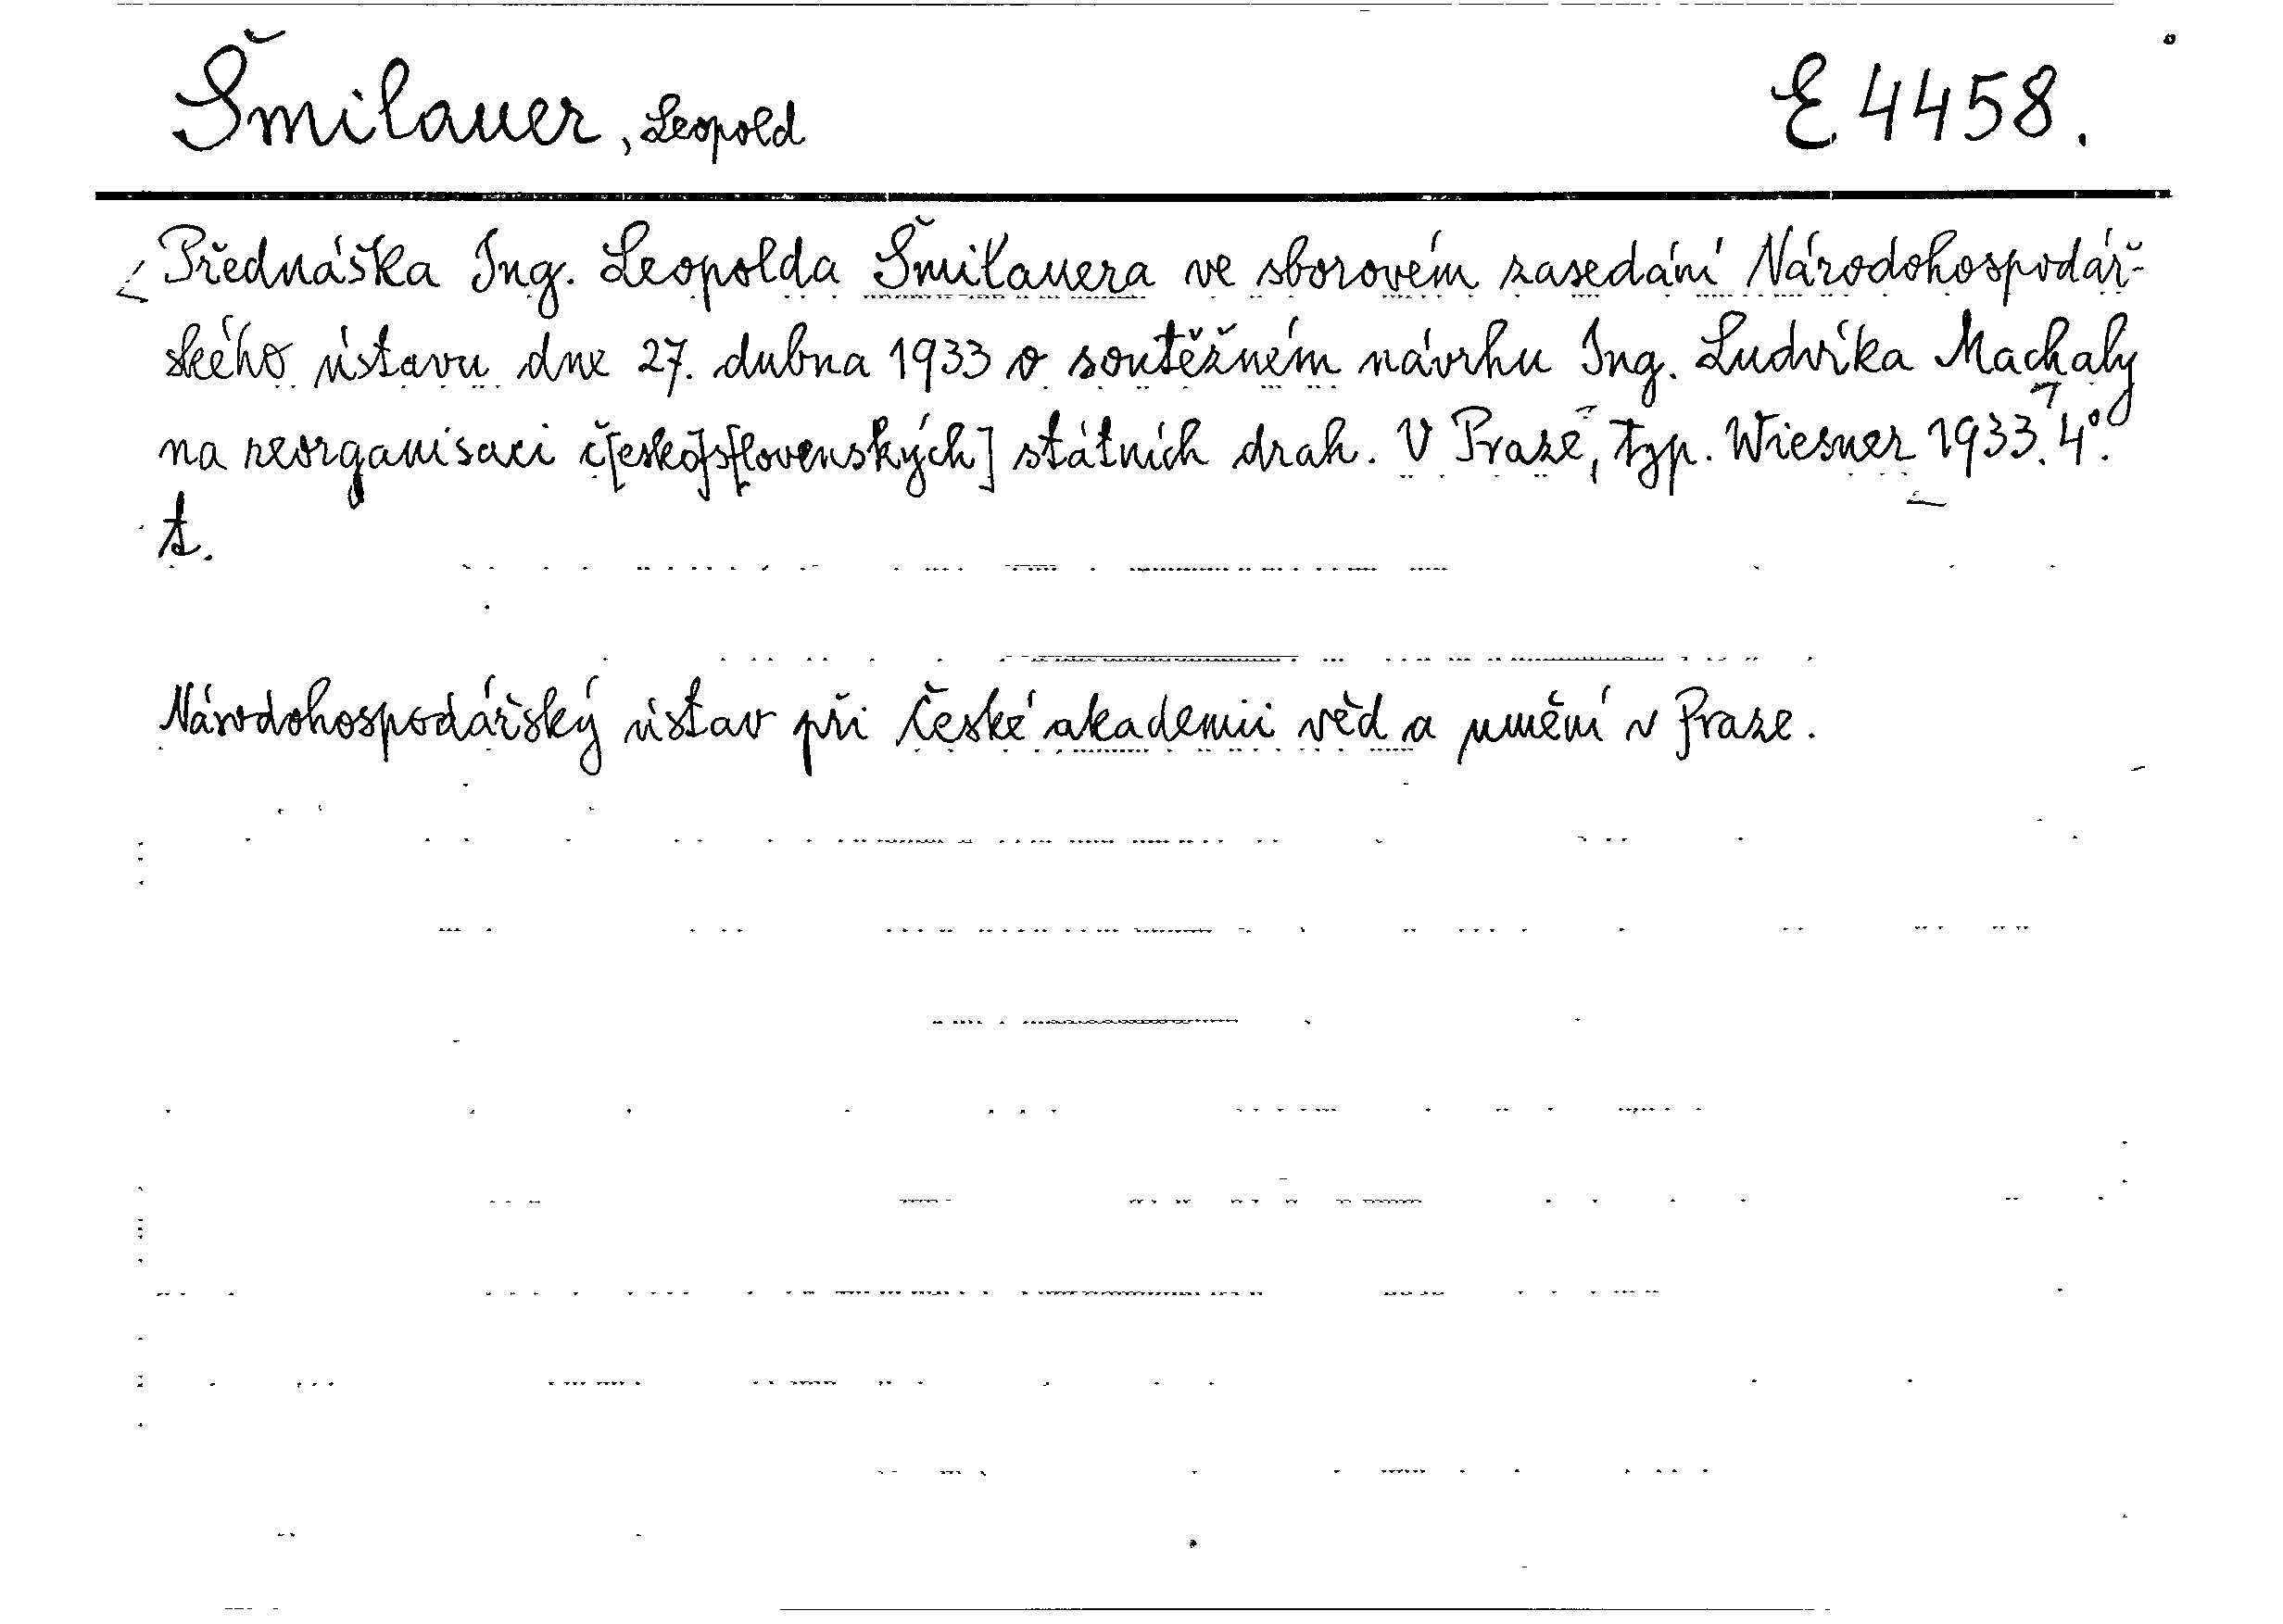 Šmilauer, Leopold E 4458.
Přednáška Ing. Leopolda Šmilauera ve sborovém zasedání Národohospodář-
ského ústavu dne 27. dubna 1933 o soutěžném návrhu Ing. Ludvíka Machaly
na reorganisaci č[esko]s[lovenských] státních drah. V Praze, typ. Wiesner 1933. 4°.
t.
Národohospodářský ústav při České akademii věd a umění v Praze.